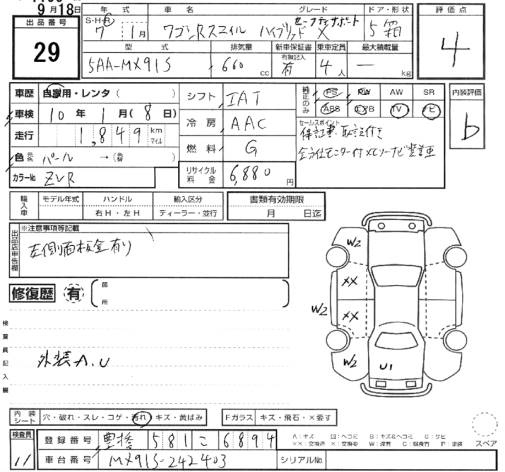 9月18日
出品番号
29
年式
S・H・R
7 1月
車名
ワゴンRスマイル ハイブリッド X
グレード
セーフティサポート
ドア・形状
5 箱
評価点
4
型式
5AA-MX91S
排気量
660 cc
新車保証書
有
乗車定員
4人
最大積載量
kg
車歴 自家用・レンタ( )
車検 10年 1月( 8日)
走行 1,849 km マイル
色 元色 パール → (替)
カラーNo ZVR
シフト IAT
冷房 AAC
燃料 G
リサイクル料金 6,880
純正のみ
PS PW AW SR
ABS エアB TV ナビ
セールスポイント
保証書、取説付き
内装評価
b
輸入車
モデル年式
ハンドル
右H・左H
輸入区分
ディーラー・並行
書類有効期限
月 日迄
出品店申告欄
※注意事項等記載
左側面板金有り
修復歴 有
部所
検査員記入欄
外装A.U
W2
XX
XX
W2
W2
W2
U1
内装シート 穴・破れ・スレ・コゲ・汚れ・キズ・黄ばみ
Fガラス キズ・飛石・X要す
検査員
11
登録番号 豊橋 581 こ 6894
車台番号 MX91S-242403
シリアルNo
スペア